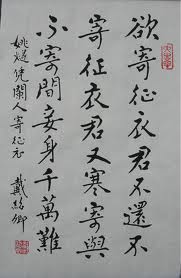 欲寄征衣君不還不
寄征衣君又寒寄與
不寄間妾身千萬難
姚燧凭闌人寄征衣 戴紹卿